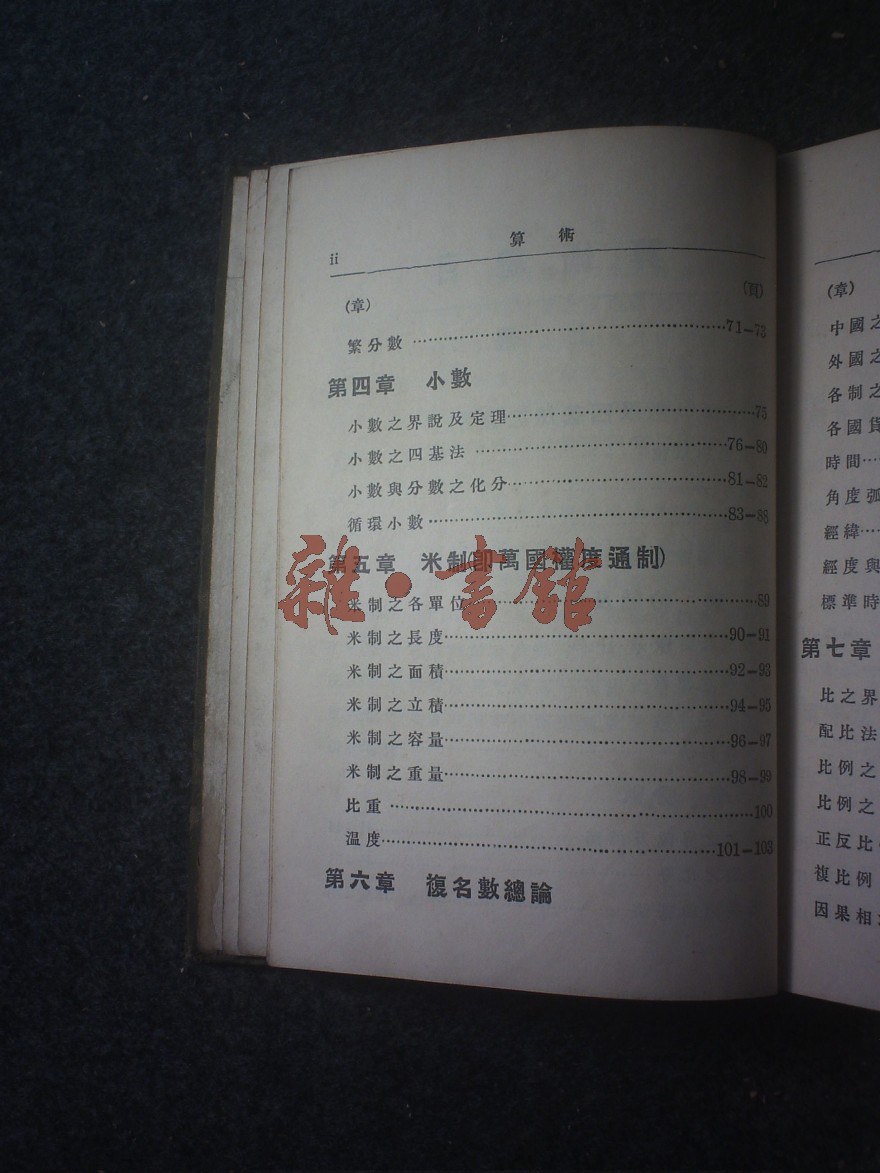 ii
算 術
(章) (頁)
繁分數 71—73
第四章 小數
小數之界說及定理 75
小數之四基法 76—80
小數與分數之化分 81—82
循環小數 83—88
第五章 米制(即萬國權度通制)
米制之各單位 89
米制之長度 90—91
米制之面積 92—93
米制之立積 94—95
米制之容量 96—97
米制之重量 98—99
比重 100
温度 101—103
第六章 復名數總論
雜·書館
(章)
中國之
外國之
各制之
各國貨
時間
角度弧
經緯
經度與
標準時
第七章
比之界
配比法
比例之
比例之
正反比
複比例
因果相